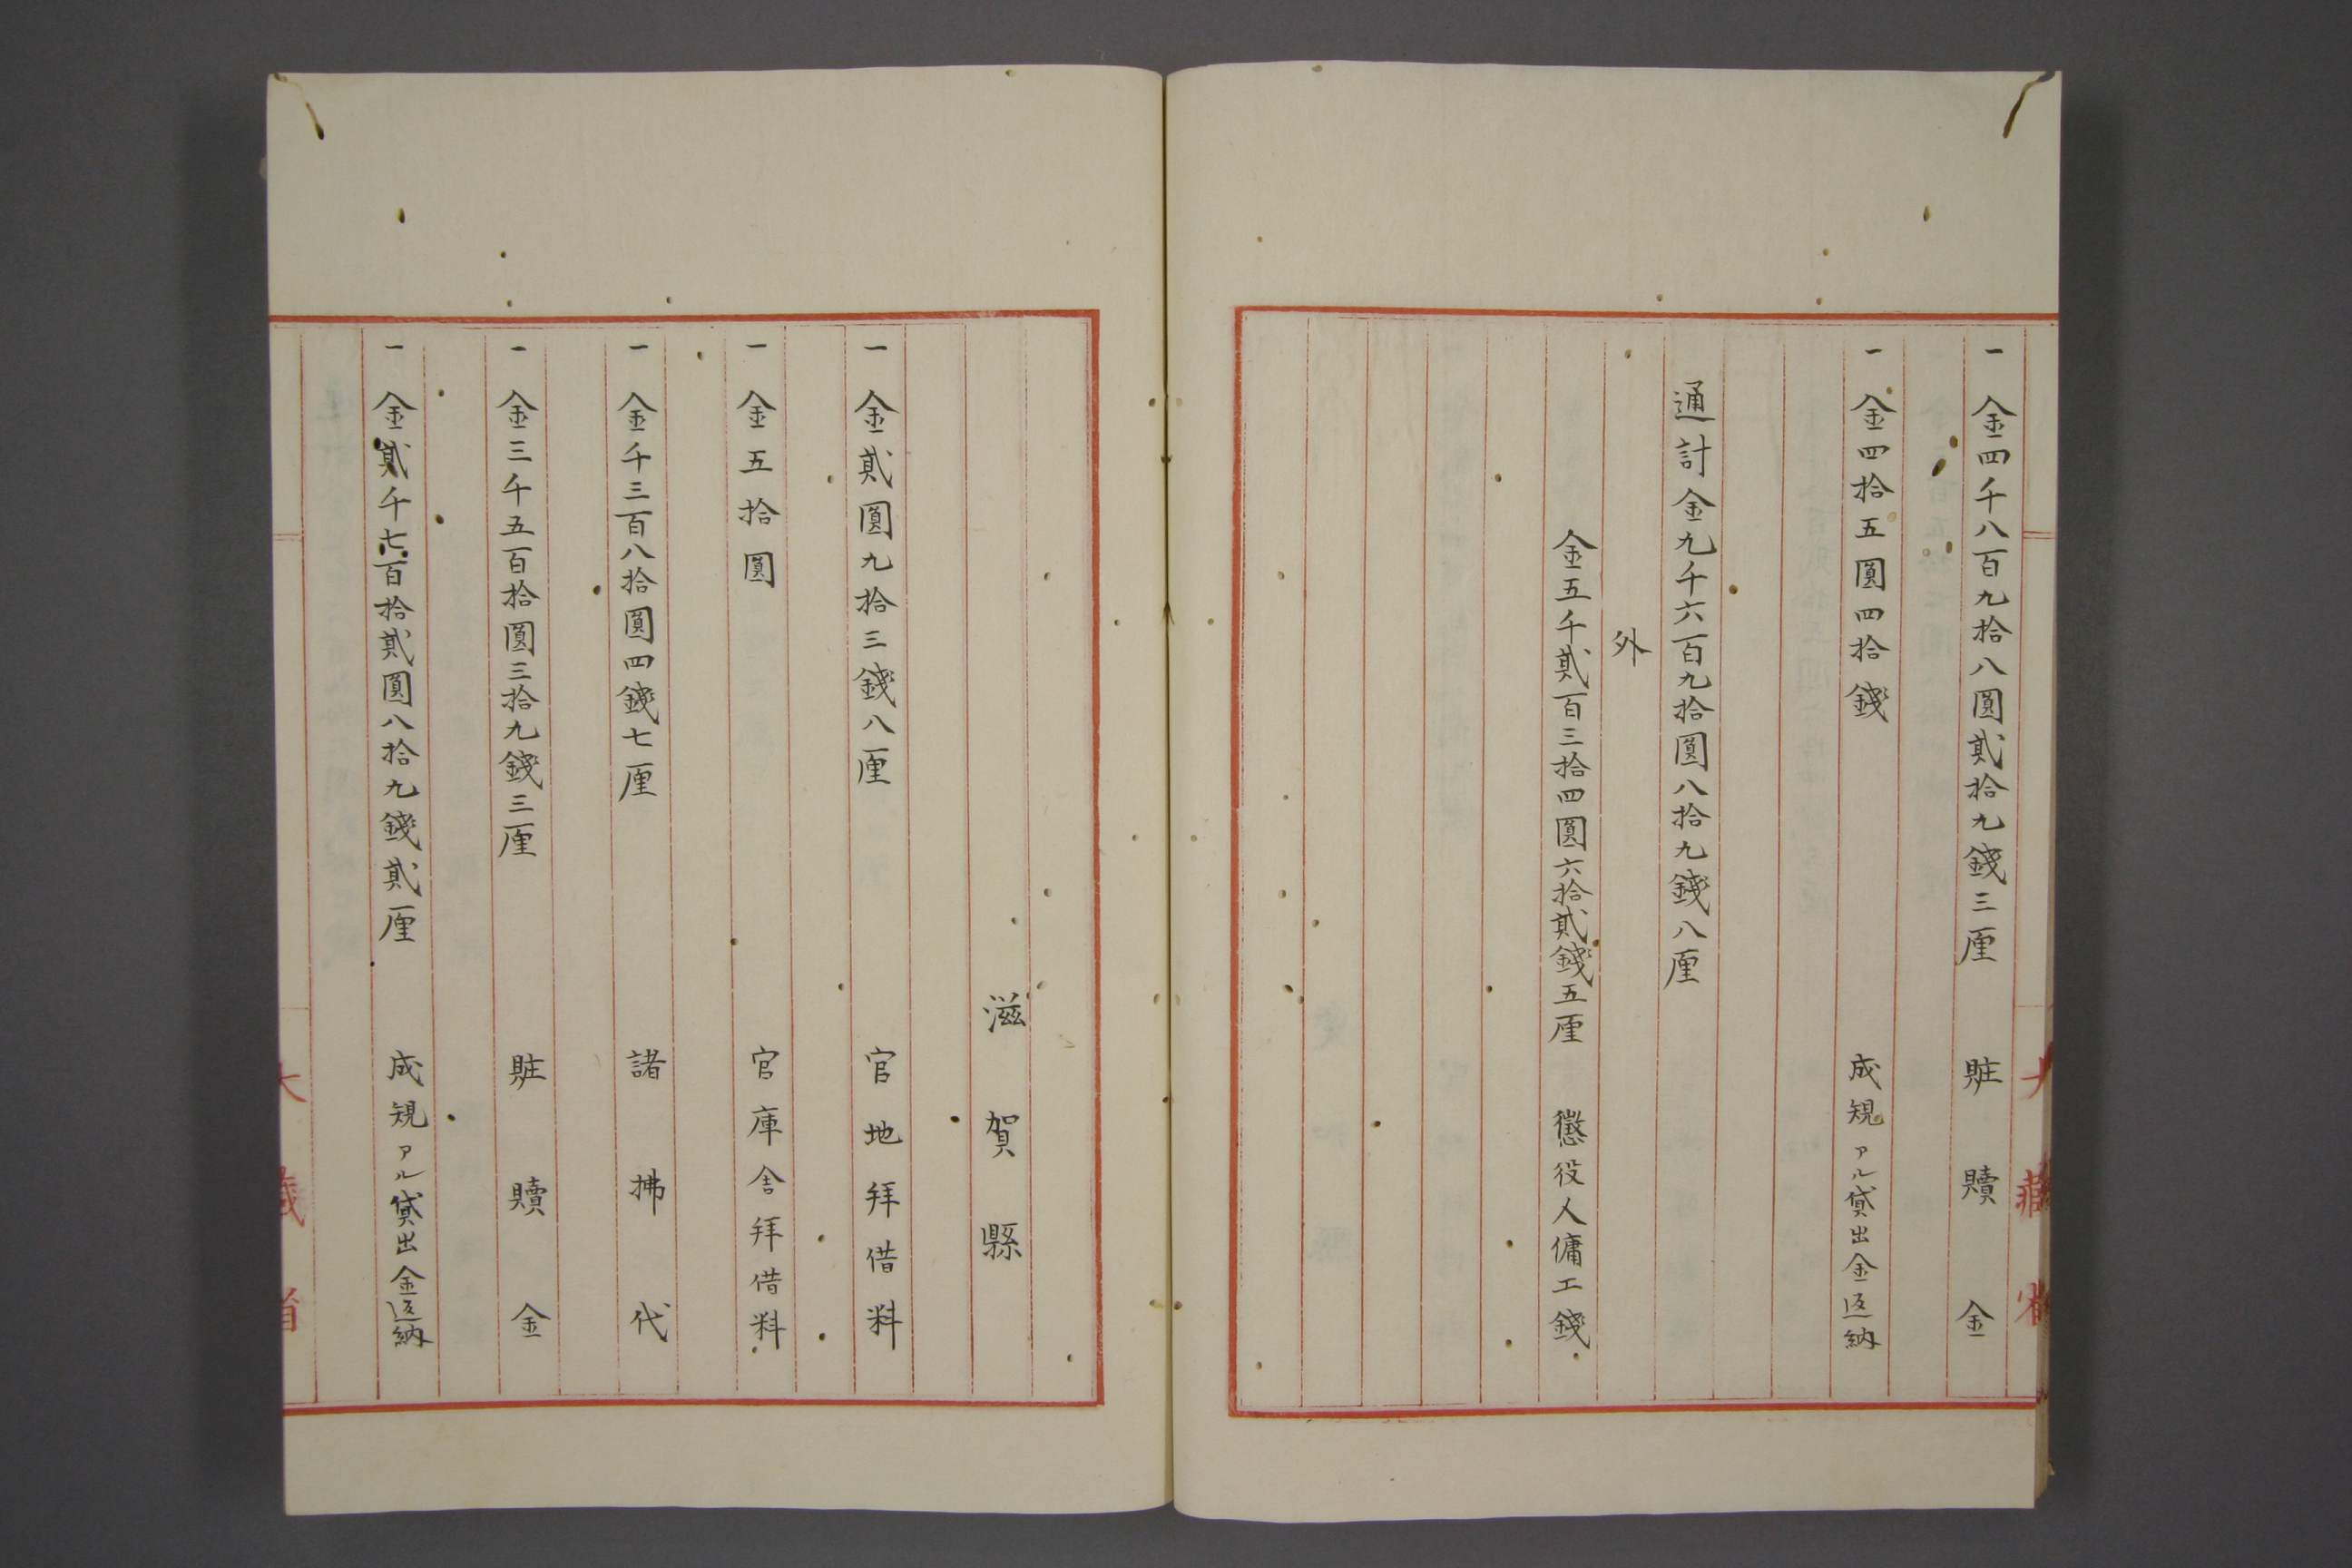 一 金四千八百九拾八圓貳拾九錢三厘 賍贖金
一 金四拾五圓四拾錢 成規アル貸出金返納
通計金九千六百九拾圓八拾九錢八厘
外
金五千貳百三拾四圓六拾貳錢五厘 懲役人傭工錢
滋賀縣
一 金貳圓九拾三錢八厘 官地拜借料
一 金五拾圓 官庫舎拜借料
一 金千三百八拾圓四錢七厘 諸拂代
一 金三千五百拾圓三拾九錢三厘 賍贖金
一 金貳千七百拾貳圓八拾九錢貳厘 成規アル貸出金返納
大藏省